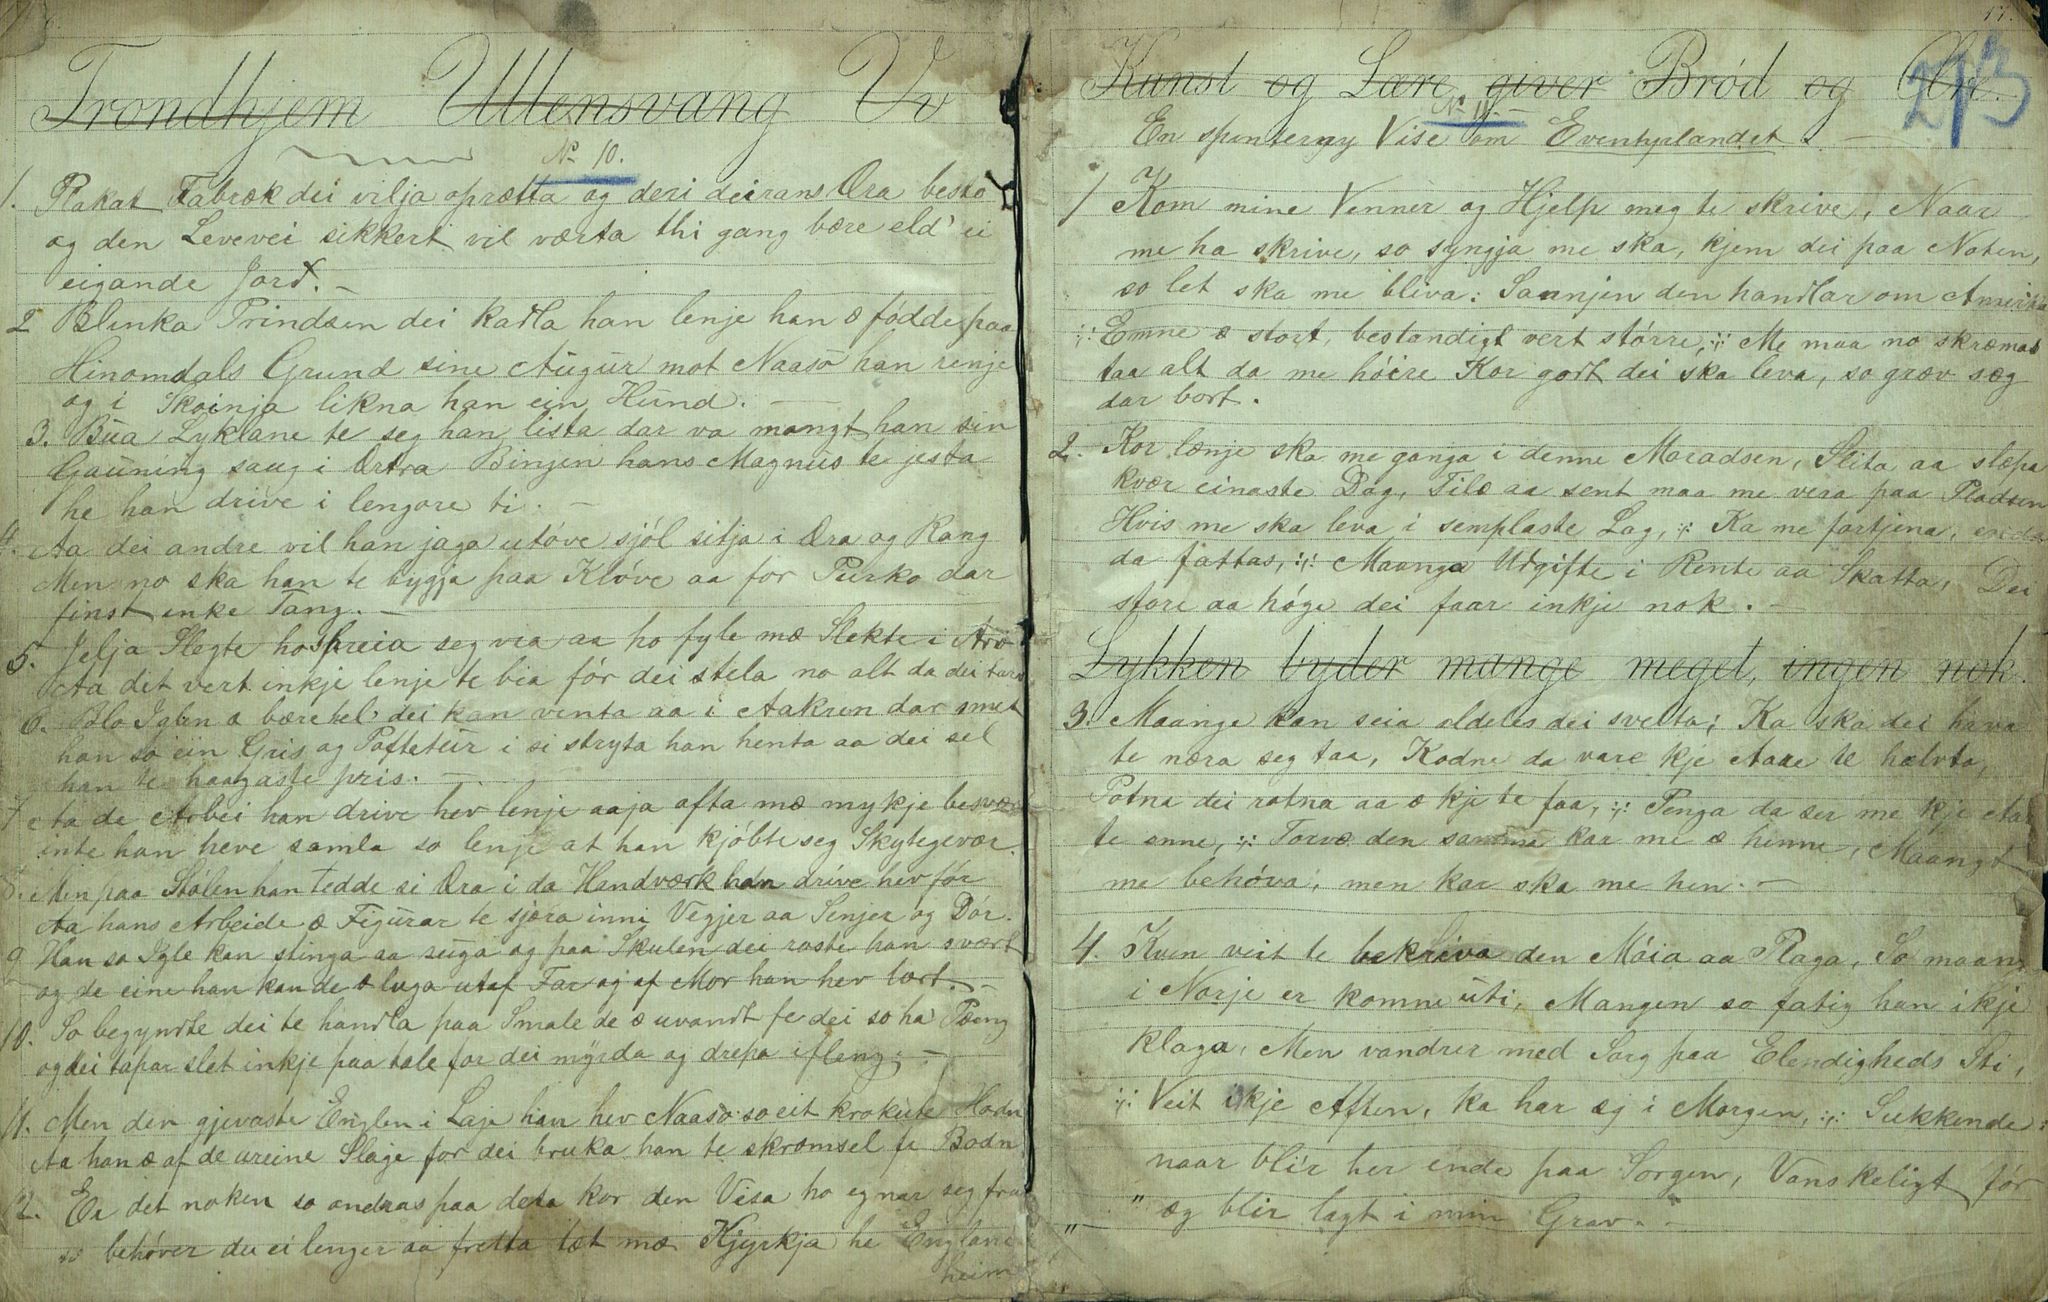 6.
Trondhjem Ullensvang Vv
No 10.
1. Plakat Fabræk dei vilja oprætta og deri deirans Æra besto
og den Levevei sikkert vil værta thi gang bære eld' ei
eigande Jord. –
2 Blenka Prindsen dei kadla han lenje han æ fódde paa
Hinomdals Grund sine Augur mot Naaso han renje
og i Skoinja likna han ein Hund. –
3. Bua Lyklane te seg han lista dar va mangt han sin
Gauning saug i Ørtra Bingen hans Magnus te jesta
he han drive i lengore ti. –
4. Aa dei andre vil han jaga utóve sjól sitja i Æra og Rang
Men no ska han te bygja paa Klóve aa for Purko dar
finst inke Tang. –
5. Jelja Slegte ho spreia seg vea aa ho fyle mæ Slekte i Arv
Aa det vert inkje lenje te bia fór dei stela no alt da dei turv
6. Blo Iglen æ bæretel' dei kan venta aa i Aakren dar smet
han so ein Gris og Poftetur i si stryta han henta aa dei sel
han te haagaste pris. –
7 Aa de Arbei han drive hev lenje aaja ofta mæ mykje besvær
inte han heve samla so lenje at han kjóbte seg Skytegevær.
8. Men paa Stólen han tedde si Æra i da Handværk han drive hev fór
Aa hans Arbeide æ Figurar te sjæra inni Vegjer aa Senjer og Dór.
9 Han so Igle kan stinga aa suga og paa Skulen dei roste han svært
og de eine han kan de æ luga utaf Far og af Mor han hev lært. –
10. So begyndte dei te handla paa Smale de æ uvandt fe dei so ha Pæng
og dei tapar slet inkje paa tale for dei myrda og drepa i fleng. –
11. Men den gjevaste Englen i Laje han hev Naaso so eit krokute Hodn
Aa han æ af de ureine Slaje for dei bruka han te skræmsel fe Bodn
12. Er det noken so andras paa deta kor den Visa ho egnar seg fra
so behóver du ei lenger aa fretta læt mæ Kjyrkja he Englane
heim
17.
273
Kunst og Lære giver Bród og Ære.
No 11.
En spinterny Vise om Eventyrlandet. –
1 Kom mine Venner og Hjelp meg te skrive, Naar
me ha skrive, so syngja me ska, kjem dei paa Noten,
so let ska me bliva: Sannjen den handlar om Amerika
:/: Emne æ stort, bestandigt vert stórre, :/: Me maa no skræmas
taa alt da me hóire Kor godt dei ska leva, so græv sæg
dar bort.
2. Kor længje ska me ganga i denne Maradsen, Slita aa slæpa
kvær einaste Dag, Tile aa sent maa me vera paa Pladsen
Hvis me ska leva i semplaste Lag, :/: Ka me fortjena,
da fattas, :/: Maanga Udgifte i Rente aa Skatta, Dei
store aa hóge dei faar inkje nok. –
Lykken byder mange meget, ingen nok.
3. Maange kan seia aldeles dei svelta; Ka ska dei hava
te næra seg taa, Kodne da vare kje Aaae te halvta,
Potna dei rotna aa æ kje te faa, :/: Penga da ser me kje Aa
te enne, :/: Torvæ den samma kar me æ hinne, Maangt
me behóva, men kar ska me hen. –
4. Kven veit te bekriva den Móia aa Plaga, So maang
i Norje er komne uti, Mangen so fatig han ikje
klaga, Men vandrer med Sorg paa Elendigheds Sti,
:/: Veit ikje Aften, ka har eg i Morgen, :/: Sukkende:
naar blír her ende paa Sorgen, Vanskeligt fór
" – " æg blir lagt i min Grav. –